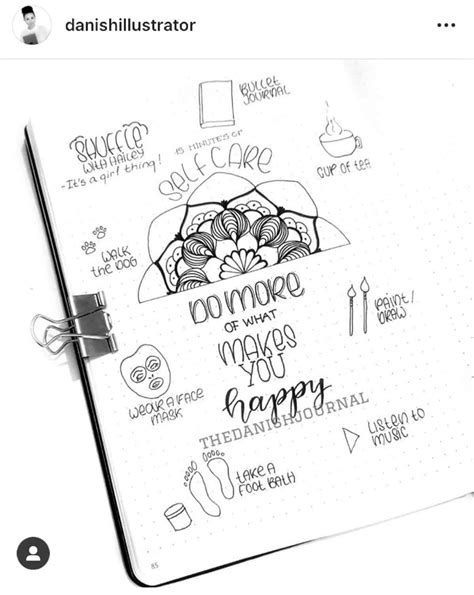 danishillustrator
BULLET
JOURNAL
SHUFFLE
WITH HAILEY
-It's a girl thing!
15 MINUTES OF
SELF CARE
CUP OF TEA
WALK
the DOG
DO MORE
OF WHAT
MAKES
YOU
happy
PAINT/
DRAW
WEAR A FACE
MASK
THEDANISHJOURNAL
LISTEN TO
MUSIC
TAKE A
FOOT BATH
85